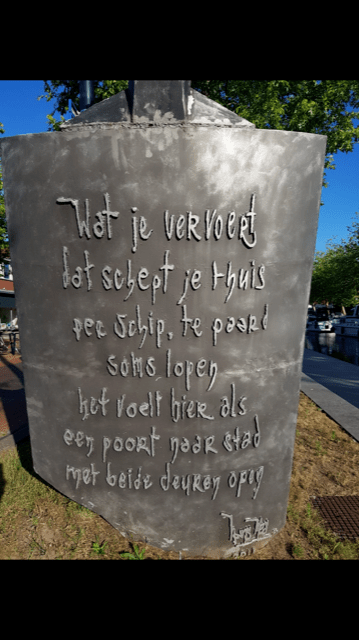 Wat je vervoert
dat schept je thuis
per schip, te paard
soms lopen
het voelt hier als
een poort naar stad
met beide deuren open